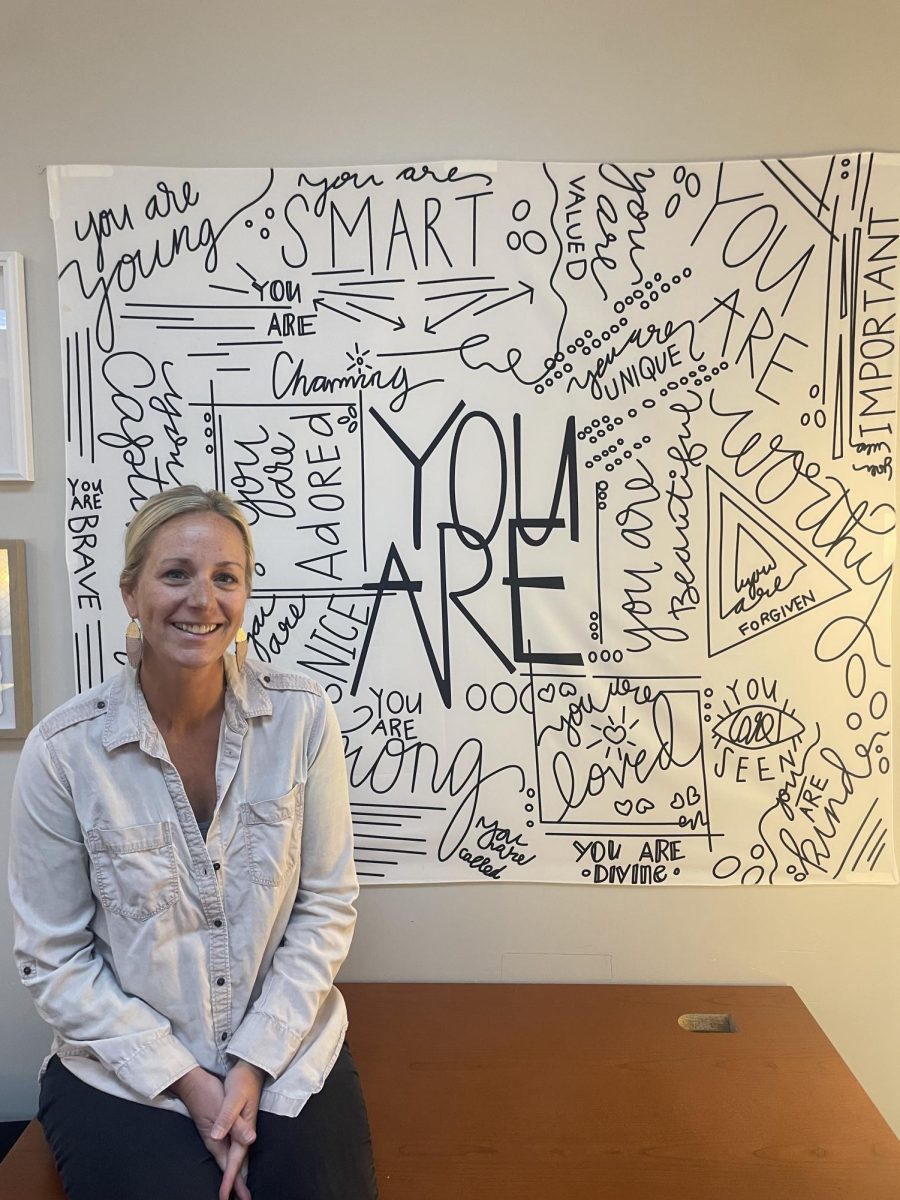 you are
young
you are
SMART
VALUED
you
are
YOU
ARE
IMPORTANT
you
YOU
ARE
Charming
you are
UNIQUE
worthy
you
are
ADORED
YOU
ARE
you are
Beautiful
YOU
ARE
BRAVE
you
are
FORGIVEN
you
are
NICE
YOU
ARE
you are
loved
YOU
are
SEEN
you
ARE
kind
you
are
called
YOU ARE
DIVINE